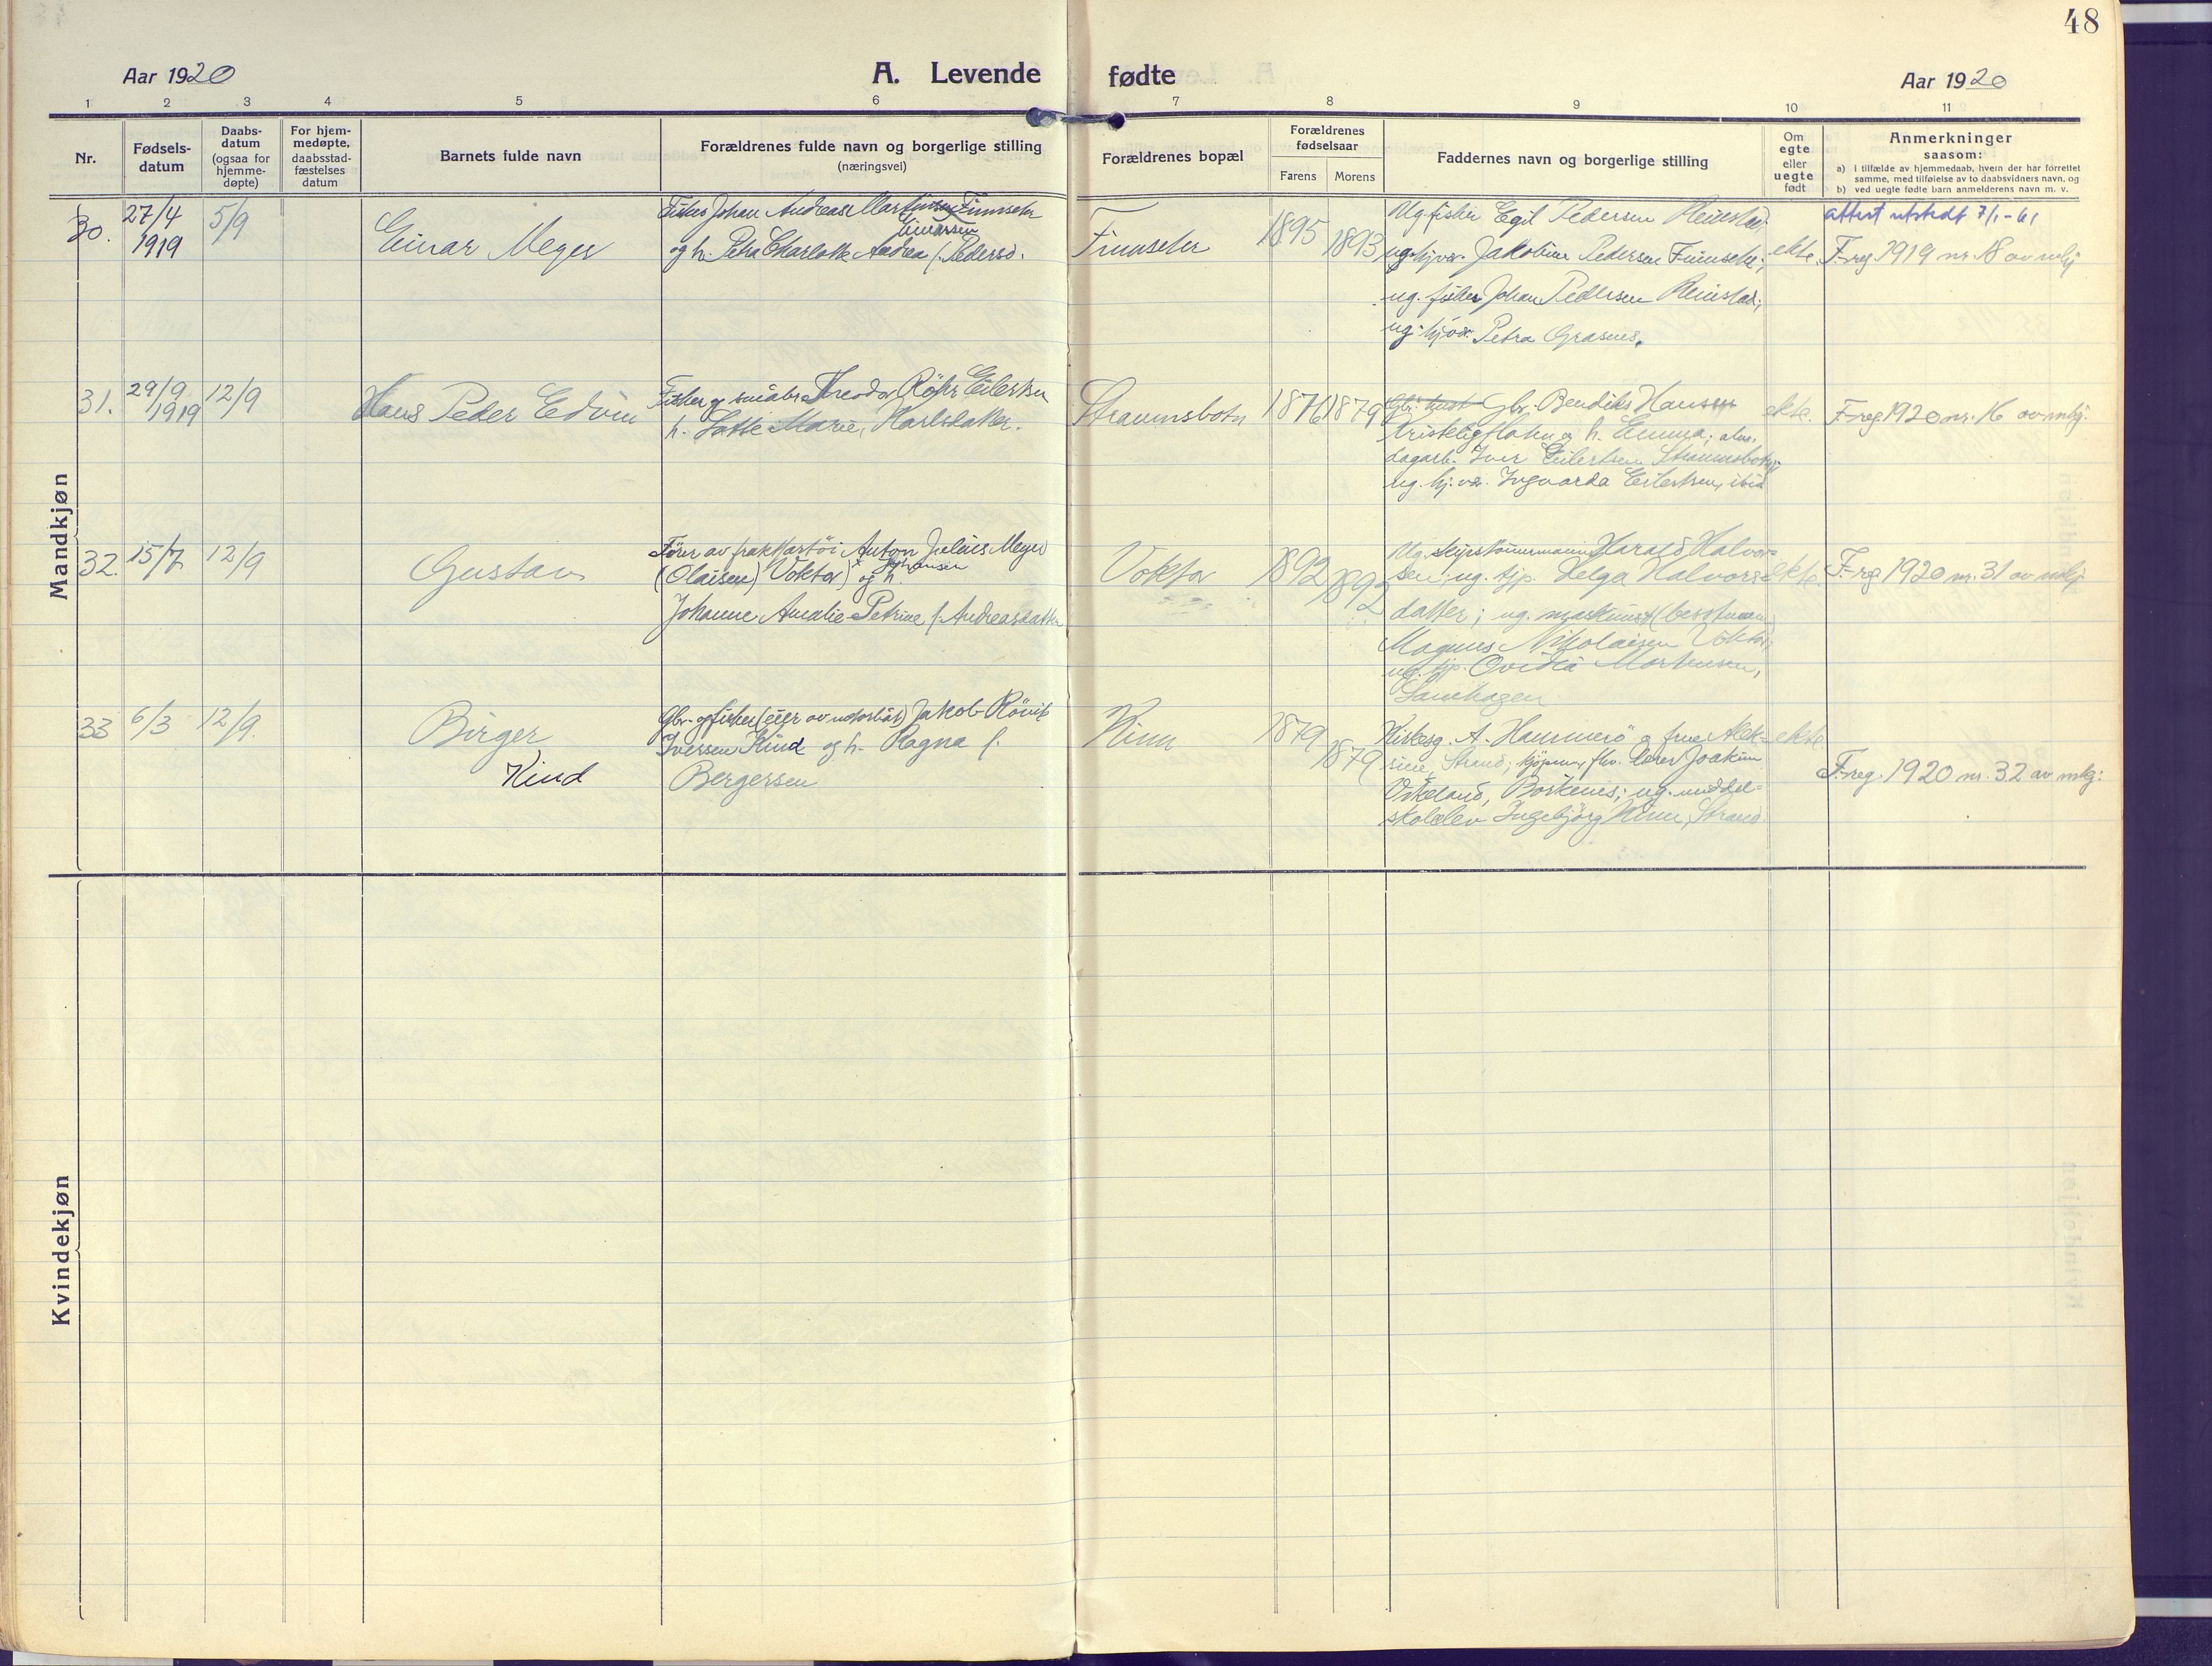 48
Aar 1920
A. Levende fødte
Aar 1920
1 2 3 4 5 6 7 8 9 10 11
Nr.
Fødsels-
datum
Daabs-
datum
(ogsaa for
hjemme-
døpte)
For hjem-
medøpte,
daabsstad-
fæstelses
datum
Barnets fulde navn
Forældrenes fulde navn og borgerlige stilling
(næringsvei)
Forældrenes bopæl
Forældrenes
fødselsaar
Farens Morens
Faddernes navn og borgerlige stilling
Om
egte
eller
uegte
født
Anmerkninger
saasom:
a) I tilfælde av hjemmedaab, hvern der har forrettet
samme, med tilføielse av to daabsvidners navn, og
b) ved uegte fødte barn anmelderens navn m. v.
Mandkjøn
30.
27/4
1919
5/9
Einar Meyer
Fisker Johan Andreas Martinsen Finnsæter
Einarsen
og h. Petra Charlotte Andrea f. Pedersd.
Finnsæter
1895
1893
Ug. fisker Egil Pedersen Reinstad;
ug. hjvær. Jakobine Pedersen Finnsæter;
ug. fisker Johan Pedersen Reinstad;
ug. hjvær. Petra Grasnes.
ekte.
attest utstedt 7/1-61
F.reg. 1919 nr. 18 av mkj
31.
29/9
1919
12/9
Hans Peder Edvin
Fisker og småbr. Theodor Röhr Eilertsen
h. Lotte Marie, Karlsdatter.
Straumsbotn
1876
1879
Gbr. Bendiks Hansen
og h. Emma;
dagarb. Iver Eilertsen Straumsbotn;
ug. hj.vær. Ingvarda Eilertsen, ibid
ekte.
F.reg. 1920 nr. 16 av mkj.
32.
15/7
12/9
Gustav
Fører av fraktfartöi Anton Julius Meyer
(Olaisen) Voktor) og h. Johansen
Johanne Amalie Petrine f. Andreasdatter
Voktor
1892
1892
Ug. skipstömmermann Harald Halvor-
sen; ug. tjp. Helga Halvors-
datter; ug. maskinist (bestmann)
Magnus Nikolaisen Voktor;
ug. tjp. Ovidia Mortensen,
ekte.
F.reg. 1920 nr. 31 av mkj
33
6/3
12/9.
Birger
Kind
Gbr. og fisker (eier av motorbåt) Jakob Rövik
Iversen Kind og h. Ragna f.
Bergersen
Kinn
1879
1879
Kirkesg. A. Hammerö og frue Alek-
sine, Strand; kjöpm., fhv. lærer Joakim
Virkeland, Borkenes; ug. middel-
skolelev Ingebjörg Kinn, Strand.
ekte.
F.reg. 1920 nr. 32 av mkj:
Kvindekjøn